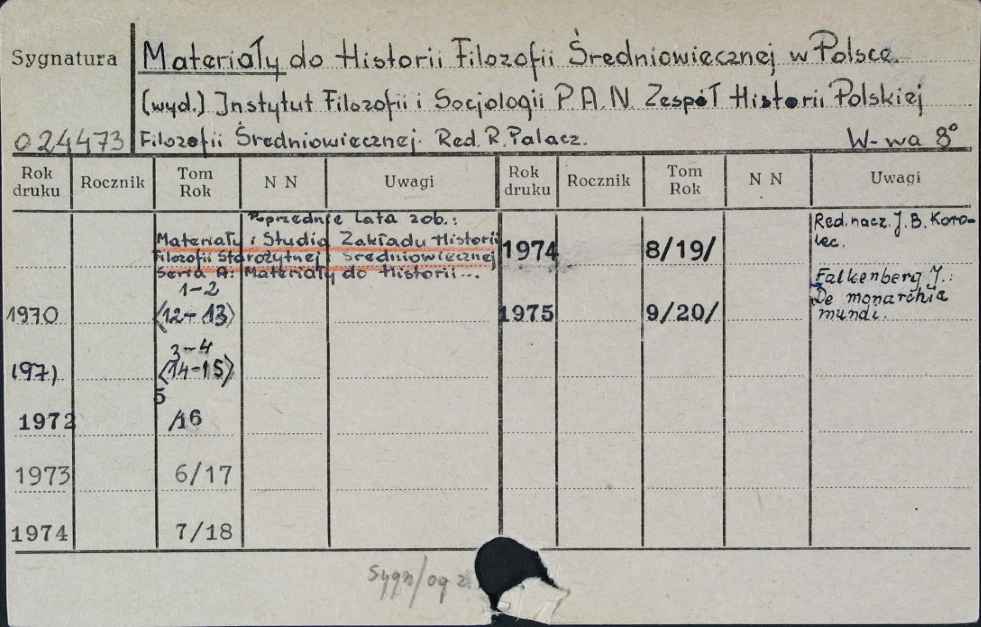 Sygnatura
Materiały do Historii Filozofii Średniowiecznej w Polsce.
(wyd.) Instytut Filozofii i Socjologii P.A.N. Zespół Historii Polskiej
024473 Filozofii Średniowiecznej. Red. R. Palacz. W-wa 8°
Rok druku Rocznik Tom Rok N N Uwagi Rok druku Rocznik Tom Rok N N Uwagi
Poprzednie lata zob.:
Materiały i Studia Zakładu Historii
Filozofii Starożytnej i Średniowiecznej
Seria A: Materiały do Historii...
1974 8/19/ Red. nacz. J. B. Koro-
lec.
1970 1-2
(12-13)
1975 9/20/ Falkenberg J.:
De monarchia
mundi.
1971 3-4
(14-15)
1972 5
/16
1973 6/17
1974 7/18
Sygn/og